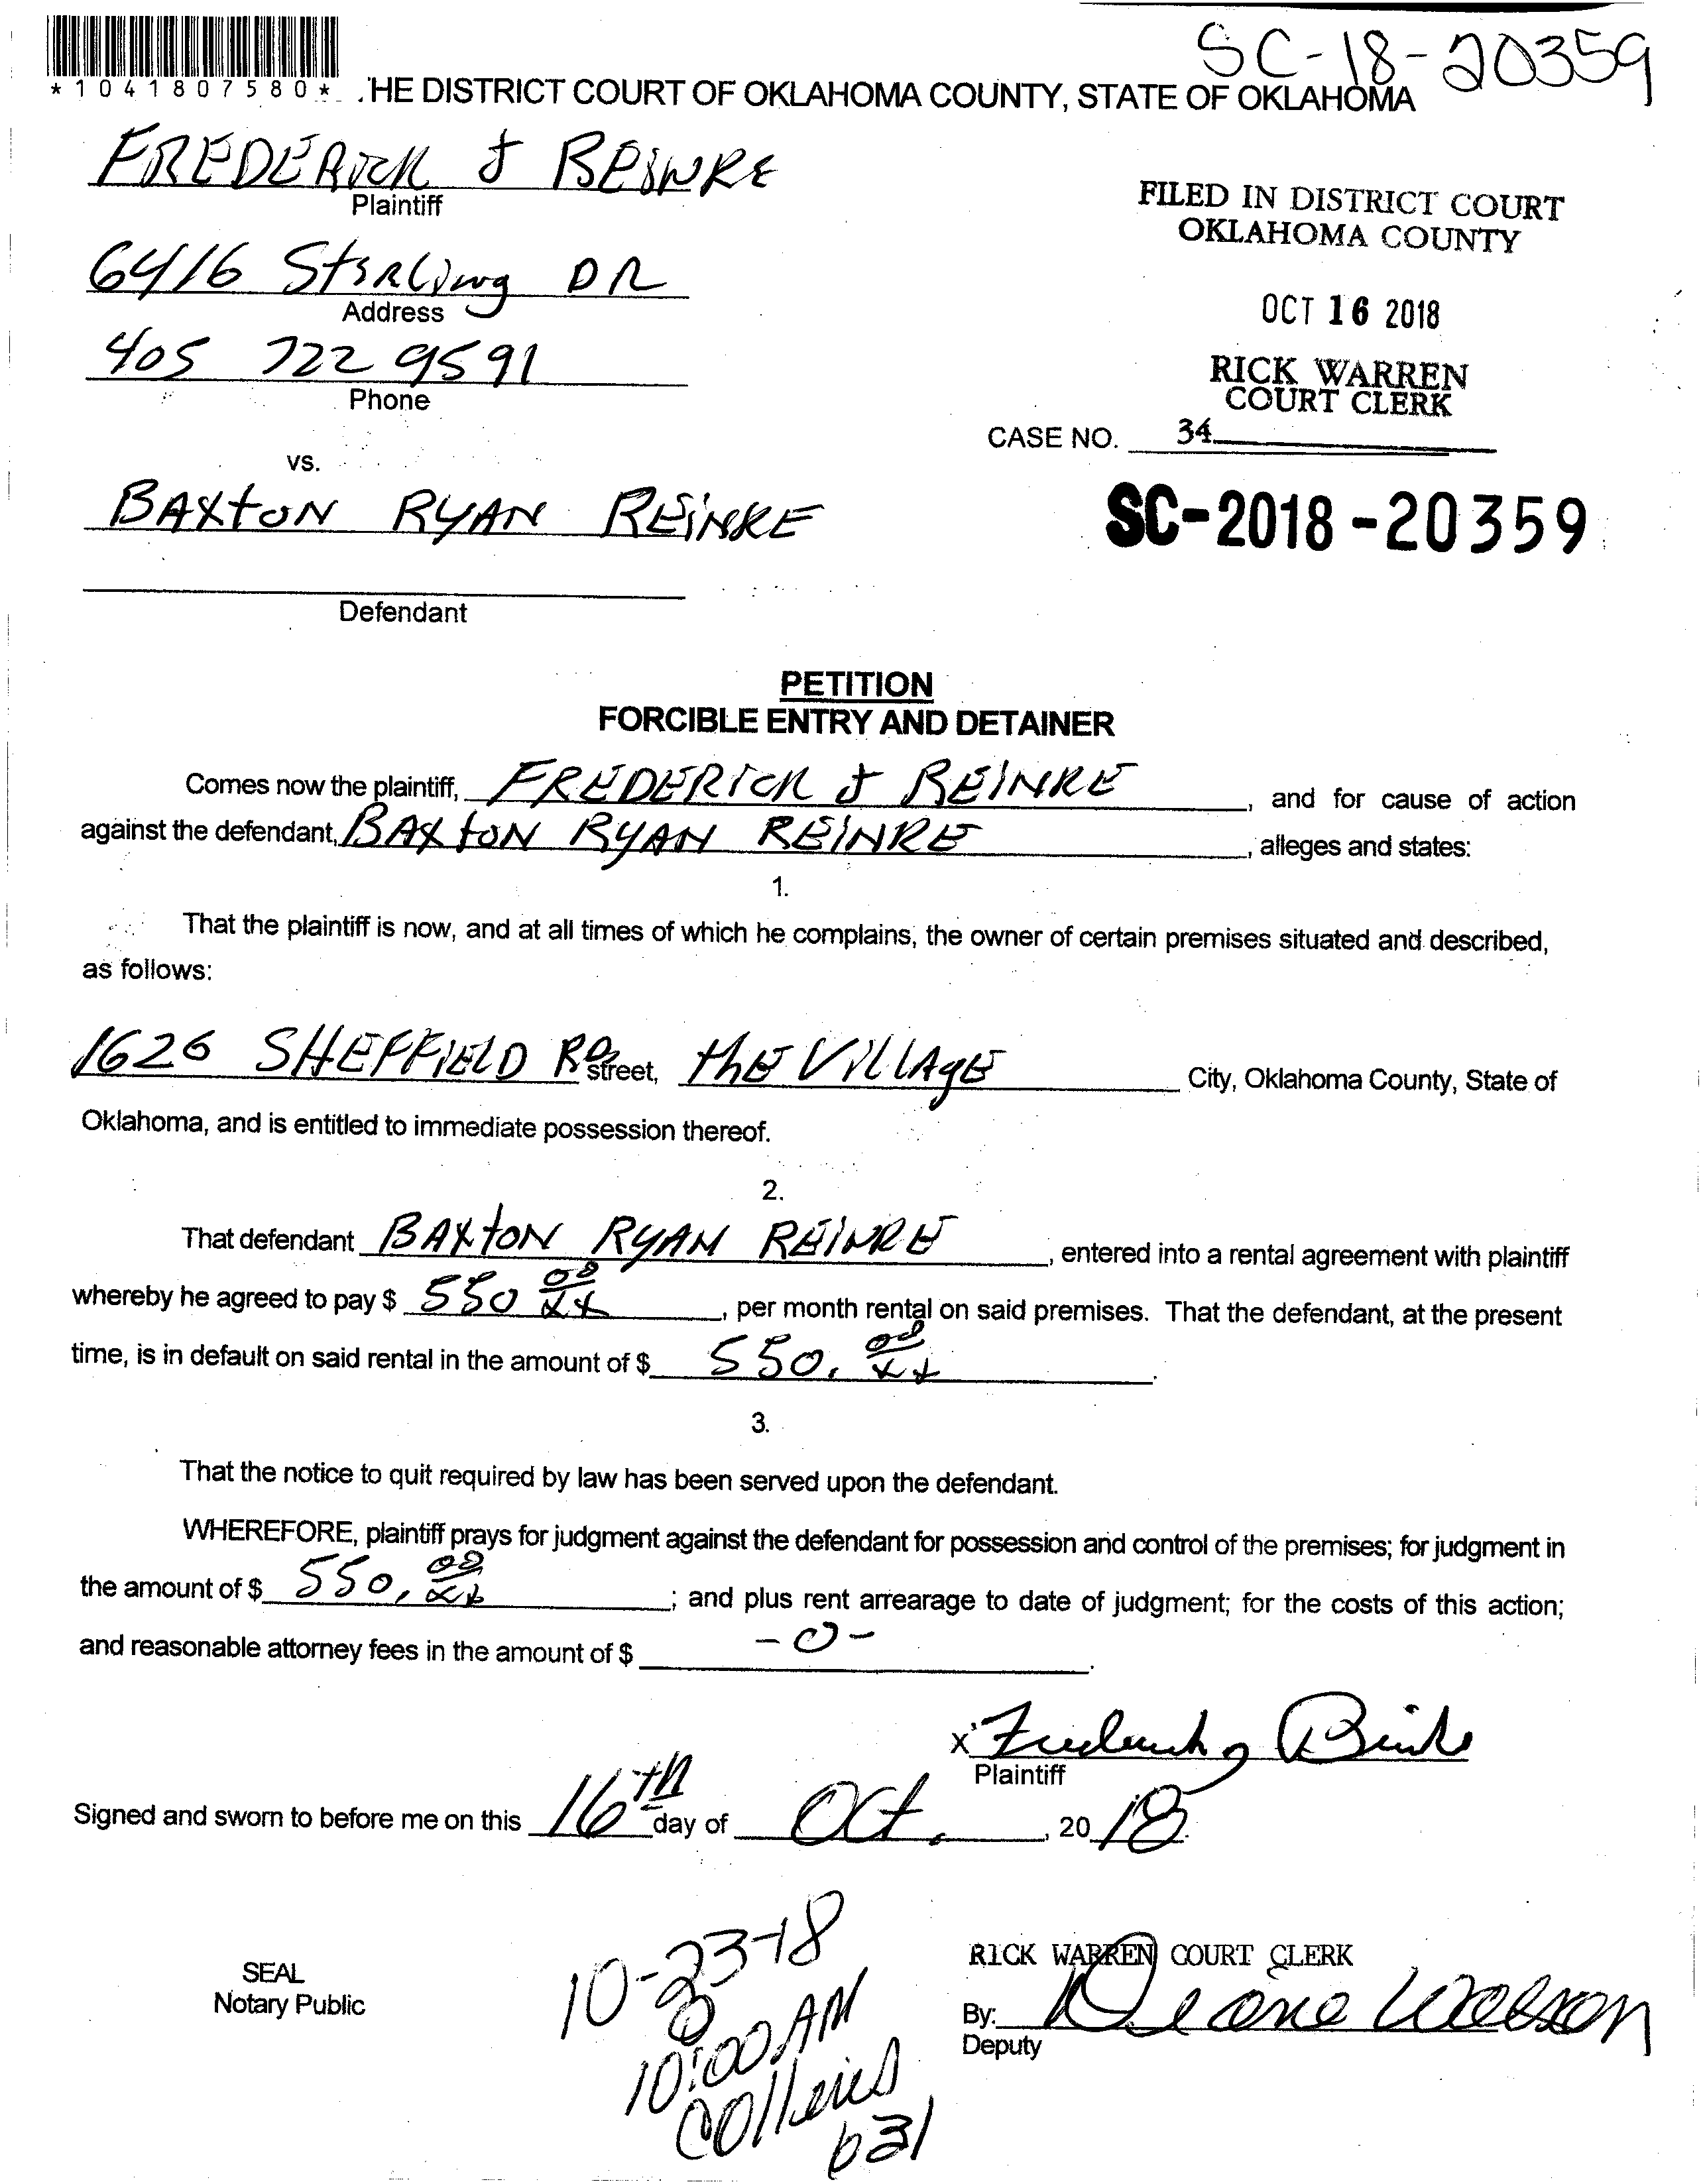 SC-18-20359
*1041807580*
.HE DISTRICT COURT OF OKLAHOMA COUNTY, STATE OF OKLAHOMA
FREDERICK J REINKE
Plaintiff
6416 Sterling DR
Address
405 722 9591
Phone
vs.
BAXTON RYAN REINKE
Defendant
FILED IN DISTRICT COURT
OKLAHOMA COUNTY
OCT 16 2018
RICK WARREN
COURT CLERK
CASE NO. 34
SC-2018-20359
PETITION
FORCIBLE ENTRY AND DETAINER
Comes now the plaintiff, FREDERICK J REINKE, and for cause of action
against the defendant, BAXTON RYAN REINKE, alleges and states:
1.
That the plaintiff is now, and at all times of which he complains, the owner of certain premises situated and described,
as follows:
1626 SHEFFIELD RD Street, thE VILLAgE City, Oklahoma County, State of
Oklahoma, and is entitled to immediate possession thereof.
2.
That defendant BAXTON RYAN REINKE, entered into a rental agreement with plaintiff
whereby he agreed to pay $ 550 00/xx, per month rental on said premises. That the defendant, at the present
time, is in default on said rental in the amount of $ 550. 00/xx.
3.
That the notice to quit required by law has been served upon the defendant.
WHEREFORE, plaintiff prays for judgment against the defendant for possession and control of the premises; for judgment in
the amount of $ 550. 00/xx; and plus rent arrearage to date of judgment; for the costs of this action;
and reasonable attorney fees in the amount of $ -0-.
X Frederick J Reinke
Plaintiff
Signed and sworn to before me on this 16th day of Oct., 2018.
SEAL
Notary Public
10-23-18
10:00 AM
631
RICK WARREN COURT CLERK
By: Diane Watson
Deputy